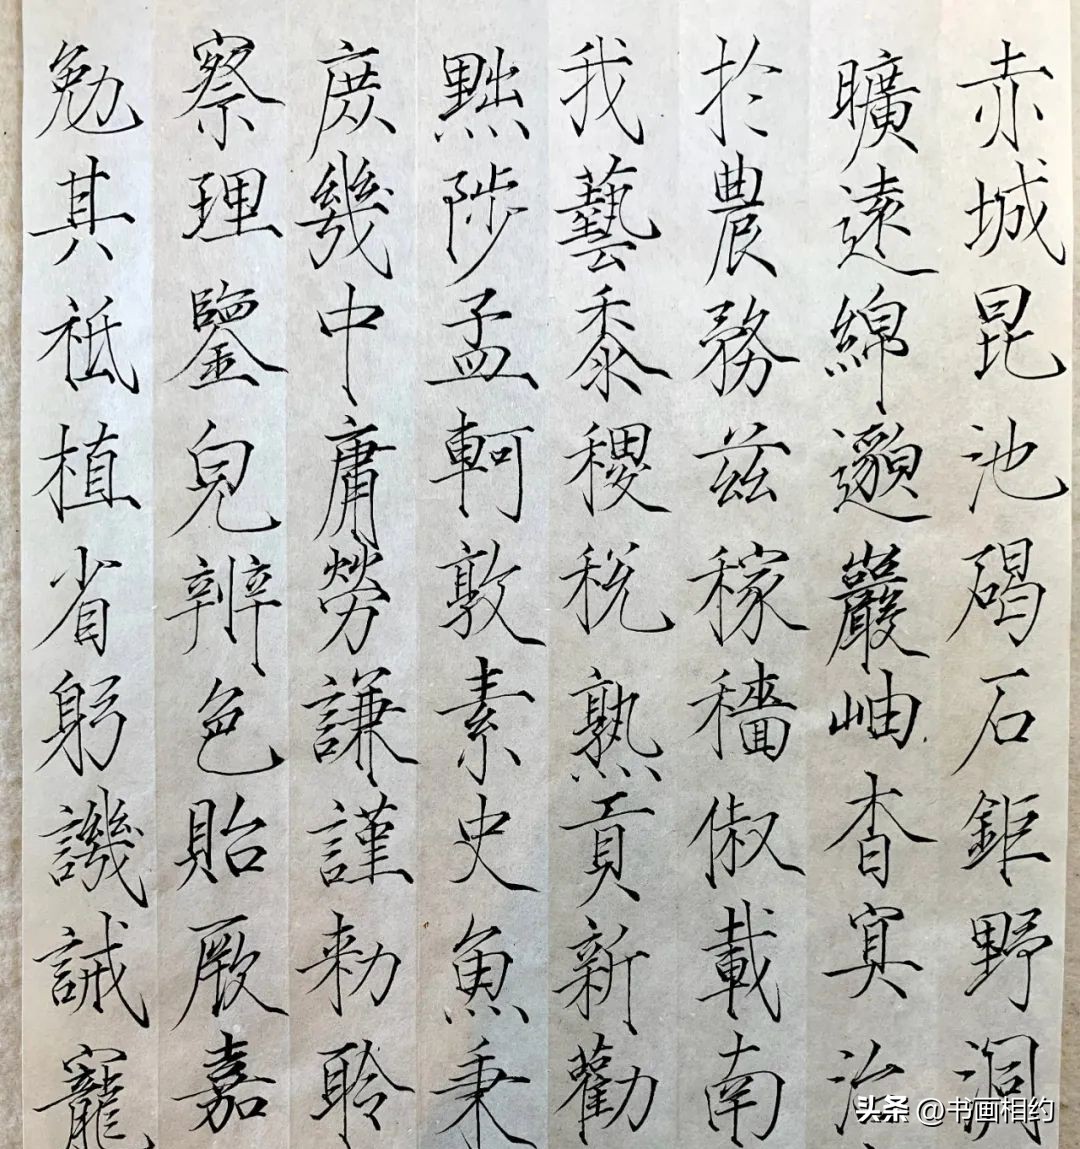 赤城昆池碣石鉅野洞
曠遠綿邈巖岫杳冥治
於農務茲稼穡俶載南
我藝黍稷稅熟貢新勸
黜陟孟軻敦素史魚秉
庶幾中庸勞謙謹勑聆
察理鑒皃辨色貽厥嘉
勉其祗植省躬譏誡寵
头条 @书画相约